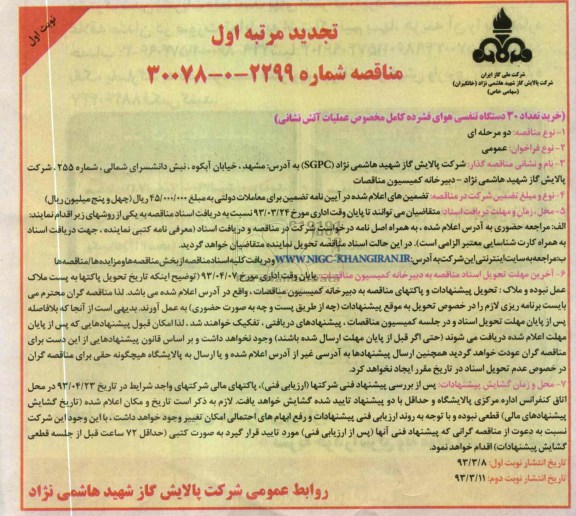 نوبت اول
تجدید مرتبه اول
مناقصه شماره ۲۲۹۹-۰-۳۰۰۷۸
شرکت ملی گاز ایران
شرکت پالایش گاز شهید هاشمی نژاد (خانگیران)
(سهامی خاص)
(خرید تعداد ۳۰ دستگاه تنفسی هوای فشرده کامل مخصوص عملیات آتش نشانی)
۱- نوع مناقصه: دو مرحله ای
۲- نوع فراخوان: عمومی
۳- نام و نشانی مناقصه گذار: شرکت پالایش گاز شهید هاشمی نژاد (SGPC) به آدرس: مشهد ، خیابان آبکوه ، نبش دانشسرای شمالی ، شماره ۲۵۵ ، شرکت
پالایش گاز شهید هاشمی نژاد - دبیرخانه کمیسیون مناقصات
۴- نوع و مبلغ تضمین شرکت در مناقصه: تضمین های اعلام شده در آیین نامه تضمین برای معاملات دولتی به مبلغ ۴۵/۰۰۰/۰۰۰ ریال (چهل و پنج میلیون ریال)
۵- محل ، زمان و مهلت دریافت اسناد: متقاضیان می توانند تا پایان وقت اداری مورخ ۹۳/۰۳/۲۴ نسبت به دریافت اسناد مناقصه به یکی از روشهای زیر اقدام نمایند:
الف: مراجعه حضوری به آدرس اعلام شده ، به همراه اصل نامه درخواست شرکت در مناقصه و دریافت اسناد (معرفی نامه کتبی نماینده ، جهت دریافت اسناد
به همراه کارت شناسایی معتبر الزامی است). در این حالت اسناد مناقصه تحویل نماینده متقاضیان خواهد گردید.
ب: مراجعه به سایت اینترنتی این شرکت به آدرس: WWW.NIGC-KHANGIRAN.IR و دریافت کلیه اسناد مناقصه از بخش مناقصه و مزایده ها/مناقصه ها
۶- آخرین مهلت تحویل اسناد مناقصه به دبیرخانه کمیسیون مناقصات: پایان وقت اداری مورخ ۹۳/۰۴/۰۷ (توضیح اینکه تاریخ تحویل پاکتها به پست ملاک
عمل نبوده و ملاک : تحویل پیشنهادات و پاکتهای مناقصه به دبیرخانه کمیسیون مناقصات ، واقع در آدرس اعلام شده می باشد. لذا مناقصه گران محترم می
بایست برنامه ریزی لازم را در خصوص تحویل به موقع پیشنهادات (چه از طریق پست و چه به صورت حضوری) به عمل آورند. بدیهی است از آنجا که بلافاصله
پس از پایان مهلت تحویل اسناد و در جلسه کمیسیون مناقصات ، پیشنهادهای دریافتی ، تفکیک خواهند شد ، لذا امکان قبول پیشنهادهایی که پس از پایان
مهلت اعلام شده دریافت می شوند (حتی اگر قبل از پایان مهلت ارسال شده باشند) وجود نخواهد داشت و بر اساس قانون پیشنهادهایی از این دست برای
مناقصه گران عودت خواهد گردید همچنین ارسال پیشنهادها به آدرسی غیر از آدرس اعلام شده و یا ارسال به پالایشگاه هیچگونه حقی برای مناقصه گران
در خصوص عدم تحویل اسناد در تاریخ مقرر ایجاد نخواهد کرد.
۷- محل و زمان گشایش پیشنهادات: پس از بررسی پیشنهاد فنی شرکتها (ارزیابی فنی)، پاکتهای مالی شرکتهای واجد شرایط در تاریخ ۹۳/۰۴/۲۳ در محل
اتاق کنفرانس اداره مرکزی پالایشگاه و حداقل با دو پیشنهاد تایید شده گشایش خواهد یافت. لازم به ذکر است تاریخ و مکان اعلام شده (تاریخ گشایش
پیشنهادهای مالی) قطعی نبوده و با توجه به روند ارزیابی فنی پیشنهادات و رفع ابهام های احتمالی امکان تغییر وجود خواهد داشت ، با این وجود این شرکت
نسبت به دعوت از مناقصه گرانی که پیشنهاد فنی آنها (پس از ارزیابی فنی) مورد تایید قرار گیرد به صورت کتبی (حداقل ۷۲ ساعت قبل از جلسه قطعی
گشایش پیشنهادات) اقدام خواهد نمود.
تاریخ انتشار نوبت اول: ۹۳/۳/۸
تاریخ انتشار نوبت دوم: ۹۳/۳/۱۱
روابط عمومی شرکت پالایش گاز شهید هاشمی نژاد